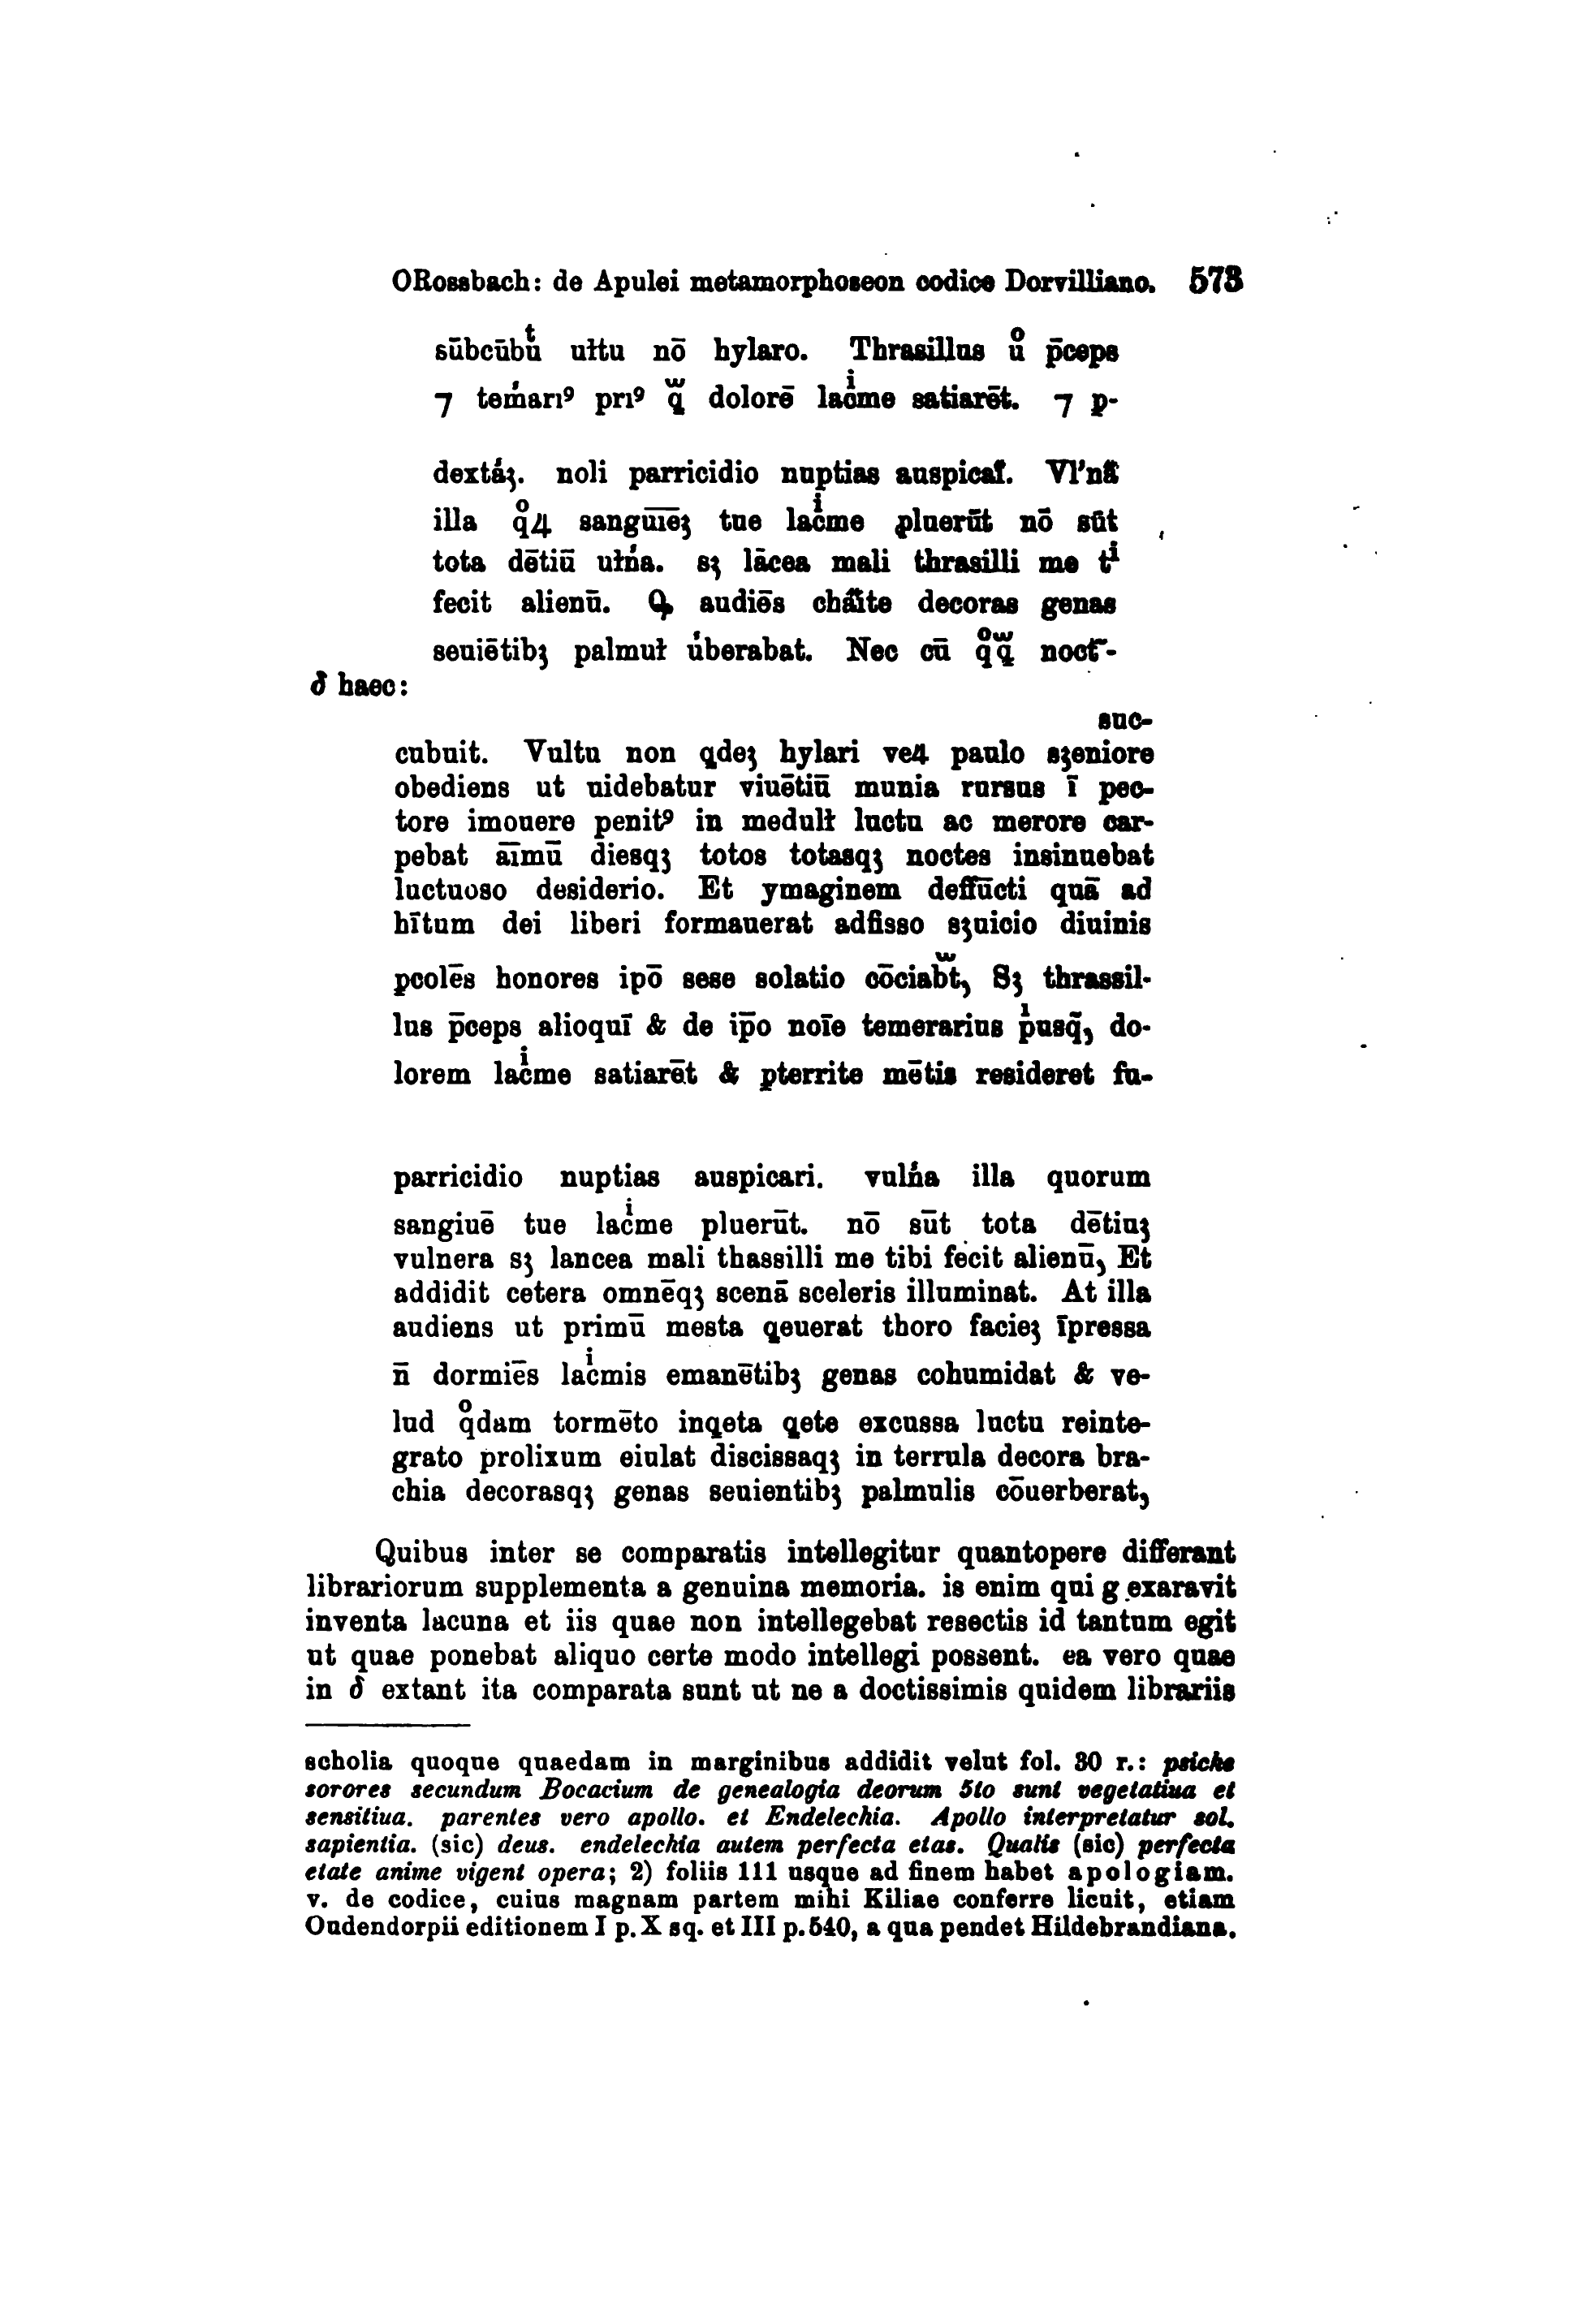 ORossbach: de Apulei metamorphoseon codice Dorvilliano. 573
sūbcūbuͭ ułtu nō hylaro. Thrasillus uͦ p̄ceps
⁊ teḿarıꝰ prıꝰ qᷓ dolorē lacͥme satiarēt. ⁊ ꝑ-
dextáꝫ. noli parricidio nuptias auspicaſ̄. Vl'na᷑
illa qͦꝝ sangu̅ı̅ēꝫ tue lacͥme ꝓluerūt nō sūt
tota dētiū ułńa. sꝫ lācea mali thrasilli me tͥ
fecit alienū. audiēs decoras genas
seuiētibꝫ palmuł úberabat. Nec cū qͦqᷓ noct᷑-
δ haec:
suc-
cubuit. Vultu non qdeꝫ hylari veꝝ paulo sꝫeniore
obediens ut uidebatur viuētiū munia rursus ī pec-
tore imouere penitꝰ in medułł luctu ac merore car-
pebat āīmū diesqꝫ totos totasqꝫ noctes insinuebat
luctuoso desiderio. Et ymaginem deffūcti quā ad
hītum dei liberi formauerat adfisso sꝫuicio diuinis
ꝑcolēs honores ipō sese solatio cōciabᷓt, Sꝫ thrassil-
lus p̄ceps alioquī & de ip̄o noīe temerarius pͥusq̄, do-
lorem lacͥme satiarēt & ꝑterrite mētis resideret fu-
parricidio nuptias auspicari. vulńa illa quorum
sangiuē tue lacͥme pluerūt. nō sūt tota dētiuꝫ
vulnera sꝫ lancea mali thassilli me tibi fecit alienū, Et
addidit cetera omnēqꝫ scenā sceleris illuminat. At illa
audiens ut primū mesta qeuerat thoro facieꝫ īpressa
n̄ dormiēs lacͥmis emanētibꝫ genas cohumidat & ve-
lud qͦdam tormēto inqeta qete excussa luctu reinte-
grato prolixum eiulat discissaqꝫ in terrula decora bra-
chia decorasqꝫ genas seuientibꝫ palmulis cōuerberat,
Quibus inter se comparatis intellegitur quantopere differant
librariorum supplementa a genuina memoria. is enim qui g exaravit
inventa lacuna et iis quae non intellegebat resectis id tantum egit
ut quae ponebat aliquo certe modo intellegi possent. ea vero quae
in δ extant ita comparata sunt ut ne a doctissimis quidem librariis
scholia quoque quaedam in marginibus addidit velut fol. 30 r.: psiche
sorores secundum Bocacium de genealogia deorum 5to sunt vegetatiua et
sensitiua. parentes vero apollo. et Endelechia. Apollo interpretatur sol.
sapientia. (sic) deus. endelechia autem perfecta etas. Qualis (sic) perfecta
etate anime vigent opera; 2) foliis 111 usque ad finem habet apologiam.
v. de codice, cuius magnam partem mihi Kiliae conferre licuit, etiam
Oudendorpii editionem I p. X sq. et III p. 540, a qua pendet Hildebrandiana.